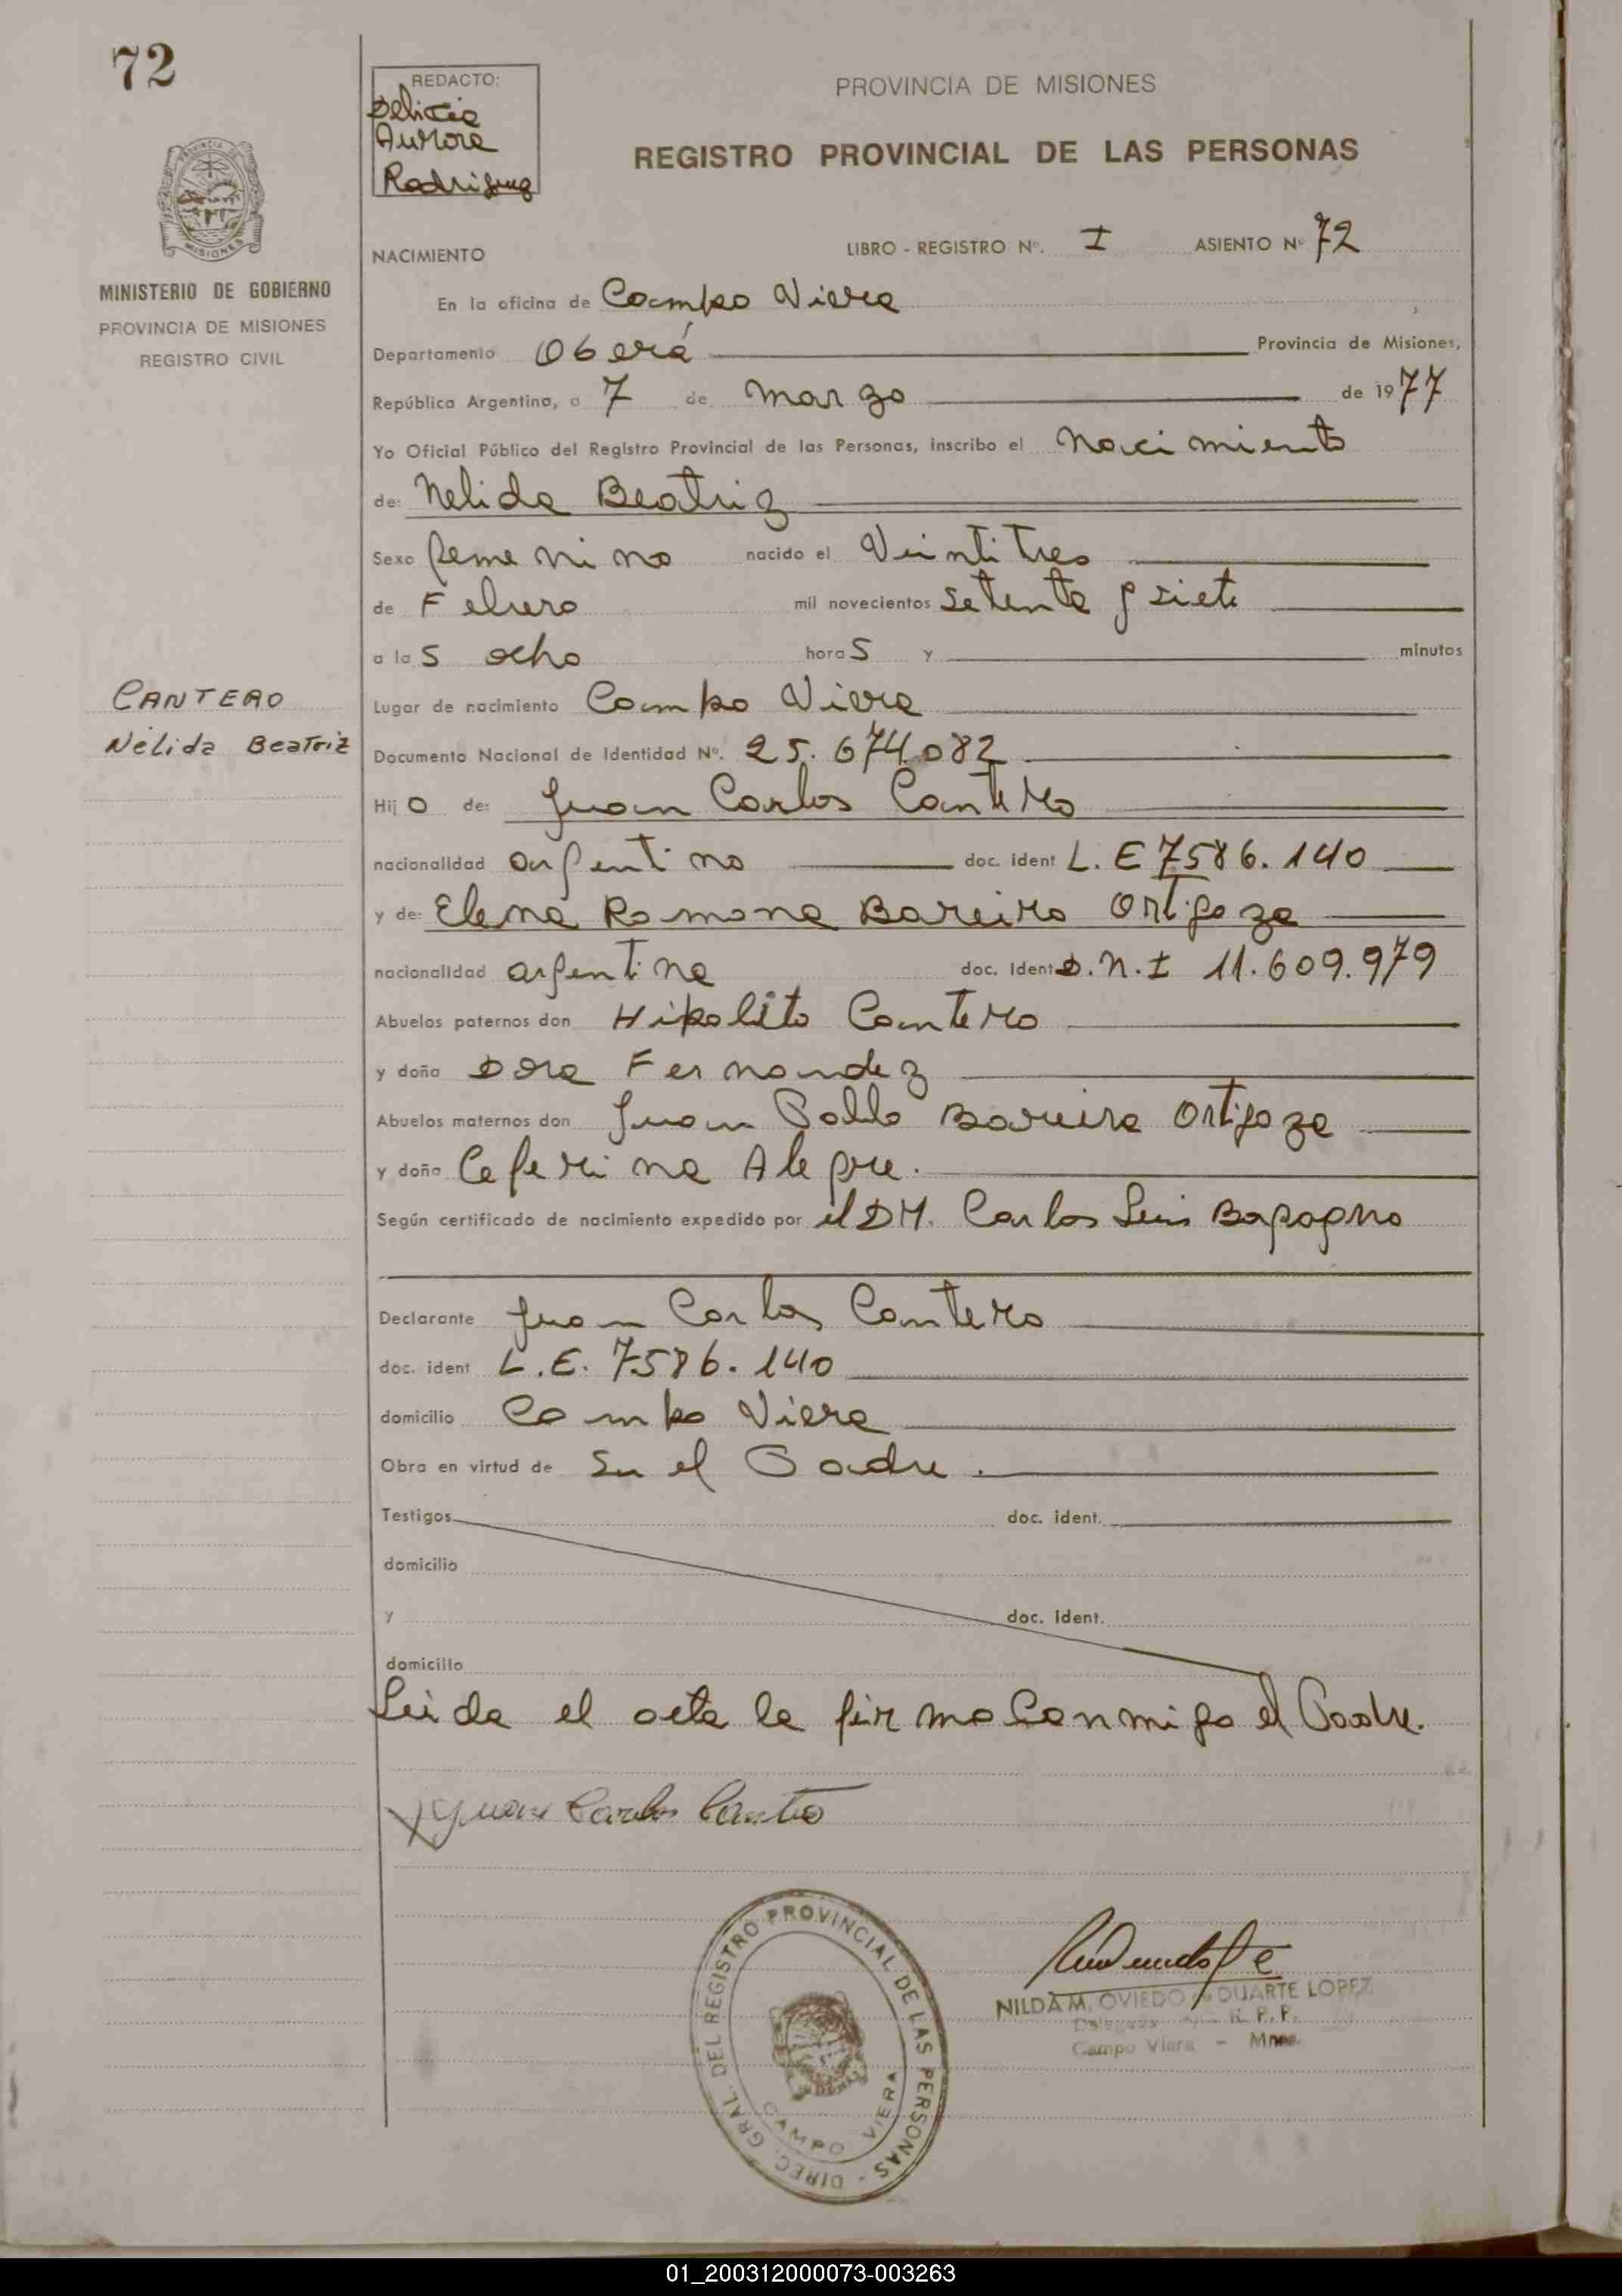 72
REDACTO:
Delicia
Aurora
Rodriguez
PROVINCIA DE MISIONES
REGISTRO PROVINCIAL DE LAS PERSONAS
PROVINCIA DE
MISIONES
MINISTERIO DE GOBIERNO
PROVINCIA DE MISIONES
REGISTRO CIVIL
NACIMIENTO LIBRO - REGISTRO Nº. I ASIENTO Nº 72
En la oficina de Campo Viera
Departamento Oberá Provincia de Misiones,
República Argentina, a 7 de marzo de 1977
Yo Oficial Público del Registro Provincial de las Personas, inscribo el Nacimiento
de: Nelida Beatriz
Sexo femenino nacido el Veintitres
de Febrero mil novecientos setenta y siete
a las ocho horas y minutos
CANTERO
Nélida Beatriz
Lugar de nacimiento Campo Viera
Documento Nacional de Identidad Nº. 25.674.082
Hijo de: Juan Carlos Cantero
nacionalidad argentino doc. ident L.E 7586.140
y de: Elena Ramona Bareiro Ortigoza
nacionalidad argentina doc. ident D.N.I 11.609.979
Abuelos paternos don Hipolito Cantero
y doña Dora Fernandez
Abuelos maternos don Juan Pablo Bareira Ortigoza
y doña Ceferina Alegre.
Según certificado de nacimiento expedido por el DR. Carlos Luis
Declarante Juan Carlos Cantero
doc. ident L.E. 7586.140
domicilio Campo Viera
Obra en virtud de Ser el Padre.
Testigos doc. ident.
domicilio
y doc. ident.
domicilio
Leida el acta la firma Conmigo el Padre.
Juan Carlos Cantero
DIREC. GRAL. DEL REGISTRO PROVINCIAL DE LAS PERSONAS -
CAMPO VIERA
NILDA M. OVIEDO de DUARTE LOPEZ
R. P. P.
Campo Viera - Mnes.
01_200312000073-003263